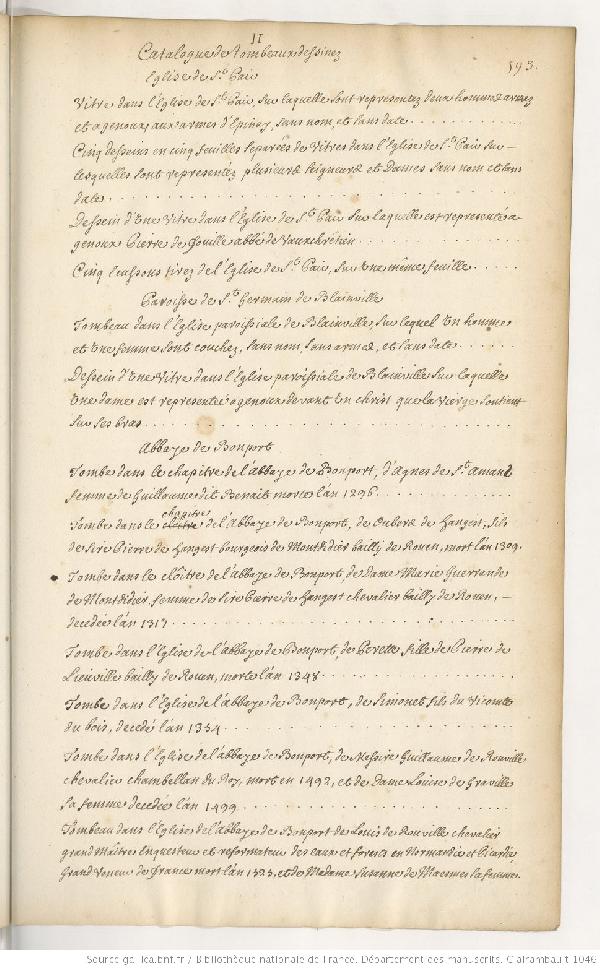 II
Catalogue de tombeaux dessinez
593.
Eglise de St. Paix
Vitre dans l'Eglise de St. Paix, sur laquelle sont representez deux hommes armez
et a genoux, aux armes d'Epinay, sans nom, et sans date
Cinq desseins en cinq feuilles separées de Vitres dans l'Eglise de St. Paix sur
lesquelles sont representez plusieurs seigneurs et Dames sans nom et sans
date
Dessein d'Une Vitre dans l'Eglise de St. Paix sur laquelle est representé a
genoux Pierre de Jouille abbé de Vauxchrétien
Cinq Ecussons tirez de l'Eglise de St. Paix, sur Une même feuille
Paroisse de St. Germain de Blainville
Tombeau dans l'Eglise paroissiale de Blainville, sur lequel Un homme
et Une femme sont couchez, sans nom, sans armes, et sans date
Dessein d'Une Vitre dans l'Eglise paroissiale de Blainville sur laquelle
Une dame est representée a genoux devant Un Christ que la Vierge soutient
sur ses bras
Abbaye de Bonport
Tombe dans le chapitre de l'abbaye de Bonport, d'Agnes de St. Amand
femme de Guillaume dit Benait morte l'an 1296
chapitre
Tombe dans le cloitre de l'abbaye de Bonport, de de Hangest, fils
de sire Pierre de Hangest bourgeois de Montdidier bailly de Rouen, mort l'an 1309.
Tombe dans le cloître de l'abbaye de Bonport, de Dame Marie Guerrande
de Montdidier femme de sire Pierre de Hangest chevalier bailly de Rouen,
decedée l'an 1317
Tombe dans l'Eglise de l'abbaye de Bonport, de Perette fille de Pierre de
Lieuville bailly de Rouen, morte l'an 1348
Tombe dans l'Eglise de l'abbaye de Bonport, de Simonet fils du Vicomte
du bois, decedé l'an 1354
Tombe dans l'Eglise de l'abbaye de Bonport, de Messire Guillaume de Rouville
chevalier chambellan du Roy, mort en 1492, et de Dame Louise de Graville
sa femme decedée l'an 1499
Tombeau dans l'Eglise de l'abbaye de Bonport de Louis de Rouville chevalier
grand Maître Enquesteur et reformateur des eaux et forests en Normandie et Picardie
Grand Veneur de france mort l'an 1525, et de Madame Suzanne de sa femme.
Source gallica.bnf.fr / Bibliothèque nationale de France. Département des manuscrits. Clairambault 1046